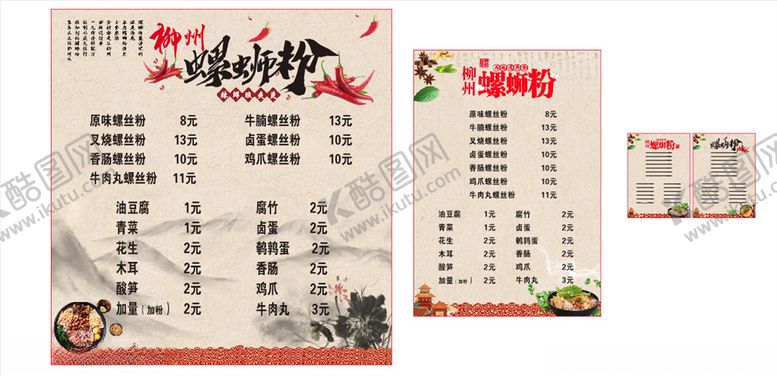 柳州
螺蛳粉
原味螺丝粉 8元 牛腩螺丝粉 13元
叉烧螺丝粉 13元 卤蛋螺丝粉 10元
香肠螺丝粉 10元 鸡爪螺丝粉 10元
牛肉丸螺丝粉 11元
油豆腐 1元 腐竹 2元
青菜 1元 卤蛋 2元
花生 2元 鹌鹑蛋 2元
木耳 2元 香肠 2元
酸笋 2元 鸡爪 2元
加量(加粉) 2元 牛肉丸 3元
柳州
螺蛳粉
原味螺丝粉 8元
牛腩螺丝粉 13元
叉烧螺丝粉 13元
卤蛋螺丝粉 10元
香肠螺丝粉 10元
鸡爪螺丝粉 10元
牛肉丸螺丝粉 11元
油豆腐 1元 腐竹 2元
青菜 1元 卤蛋 2元
花生 2元 鹌鹑蛋 2元
木耳 2元 香肠 2元
酸笋 2元 鸡爪 2元
加量(加粉) 2元 牛肉丸 3元
柳州
螺蛳粉
螺蛳粉
酷图网
www.ikutu.com